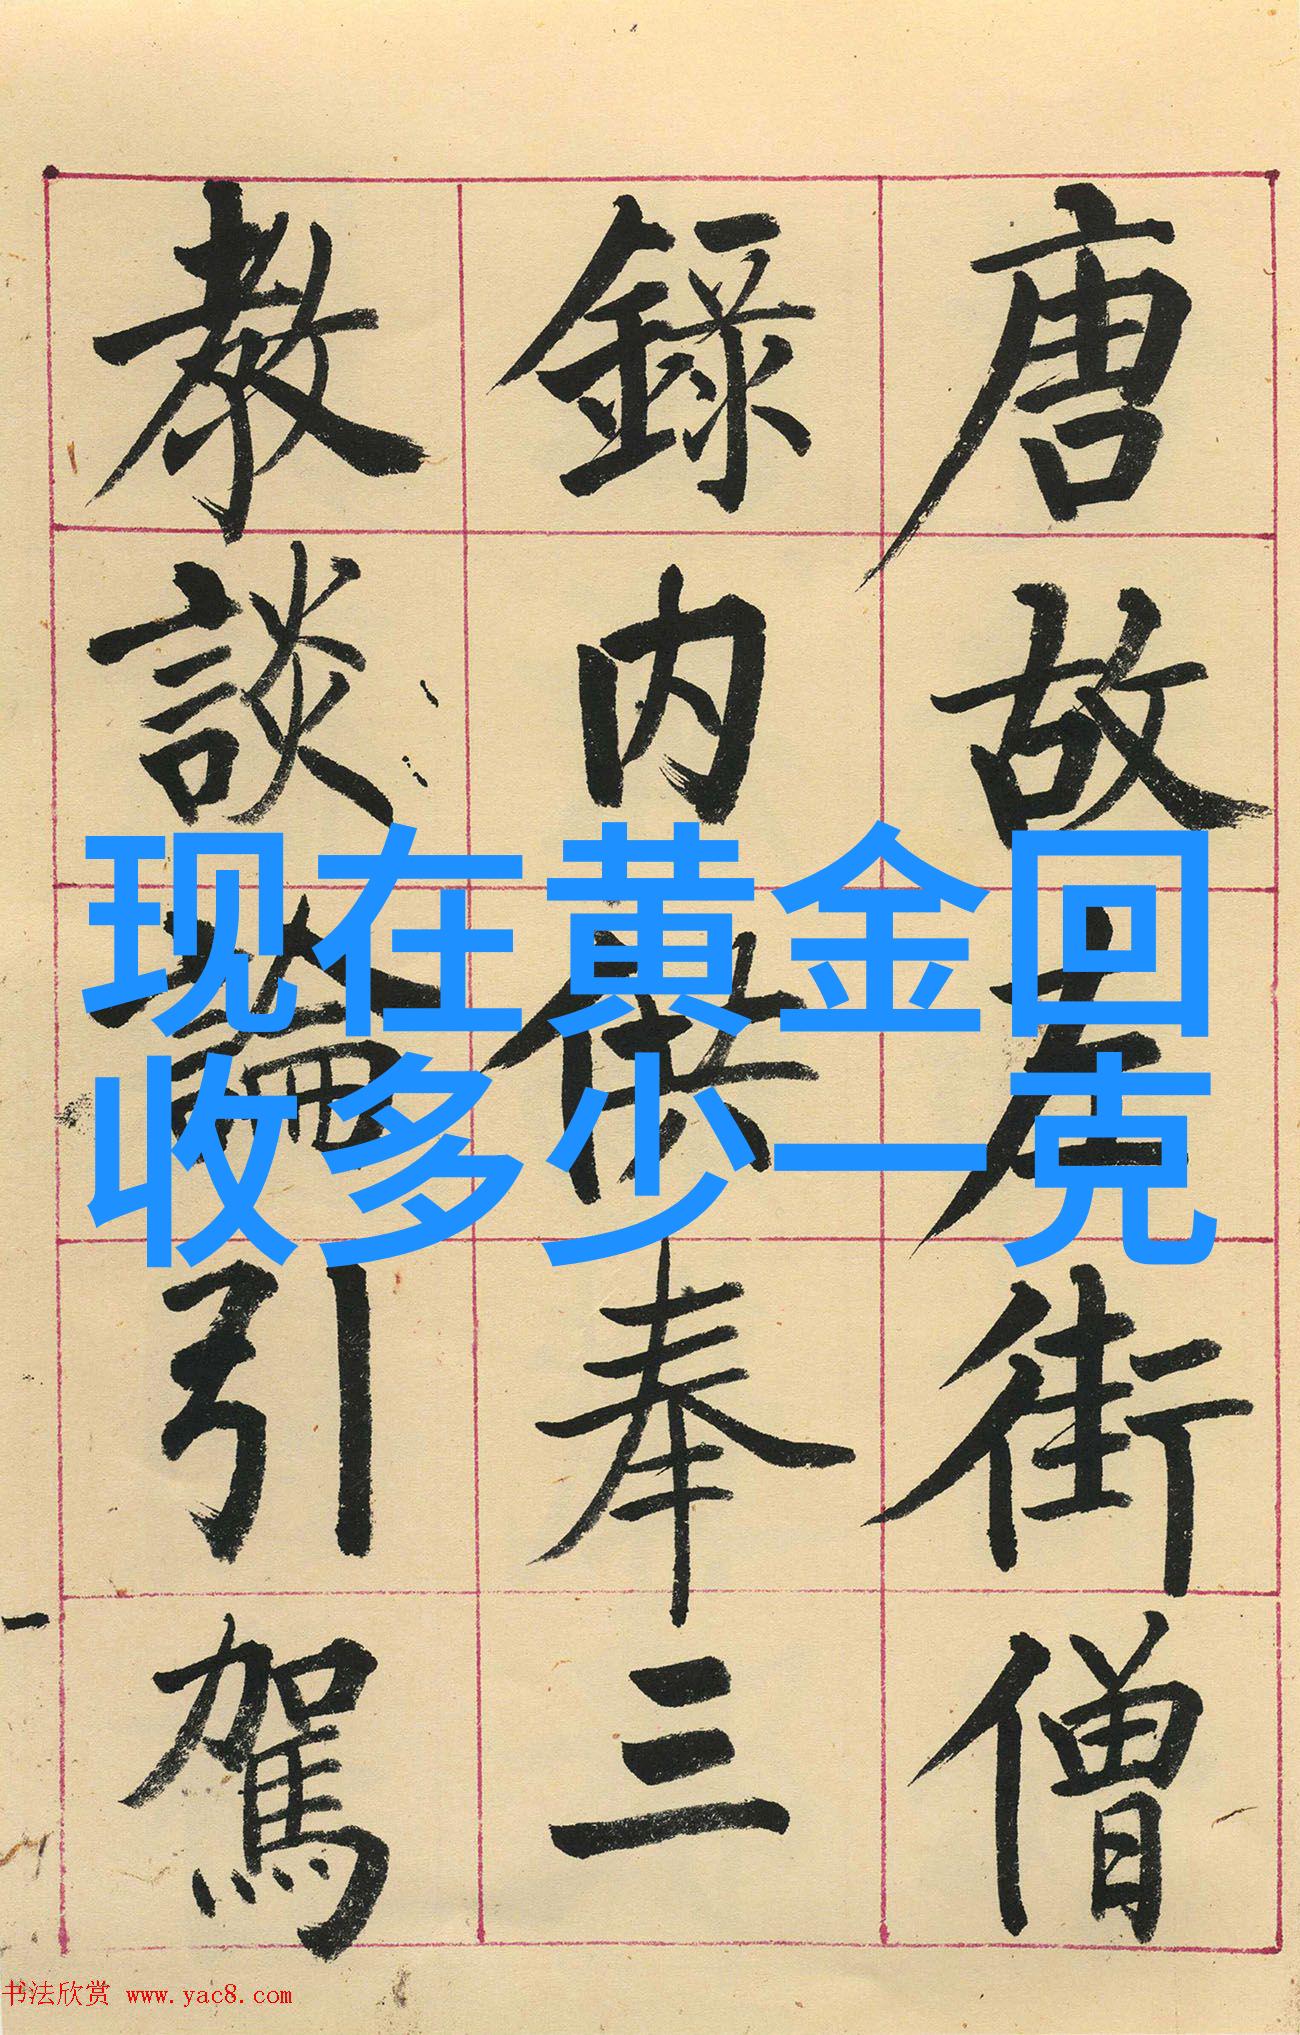 唐故左街僧
錄内供奉三
教談論引駕
现在黄金回
收多少一克
书法欣赏 www.yac8.com